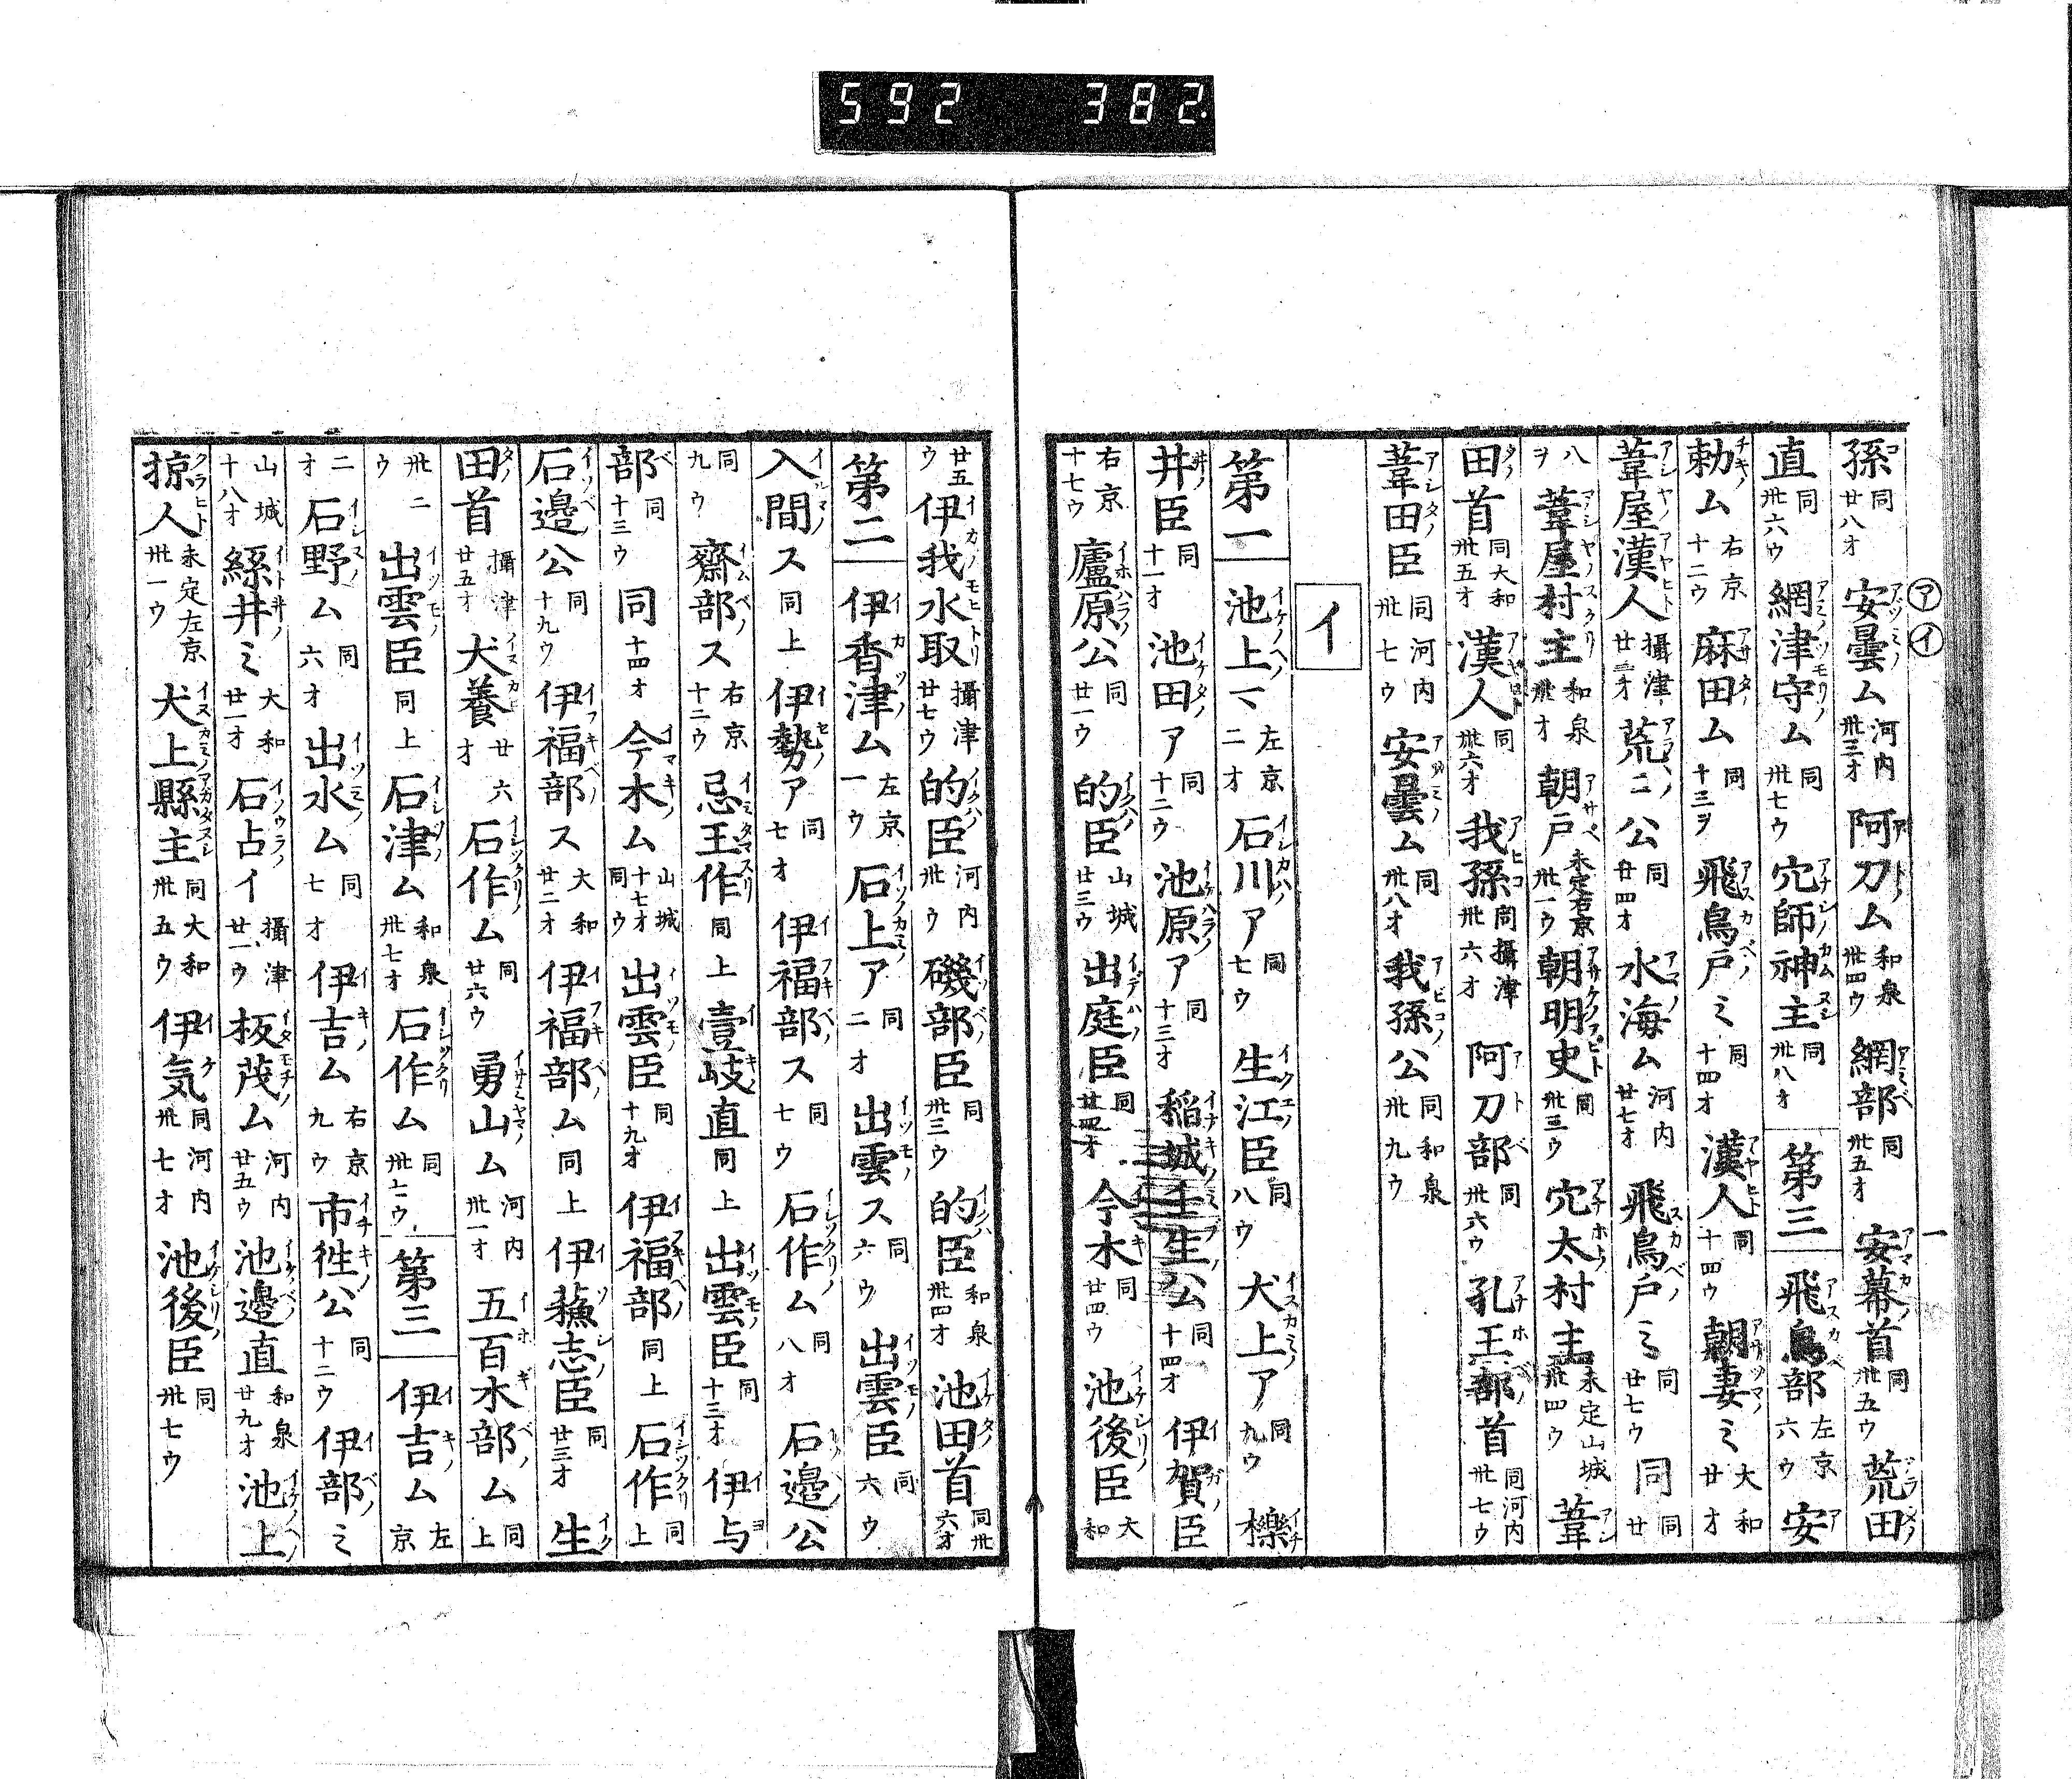 592 382
アイ
一
孫同廿八オ 安曇ム河内卅三オ 阿刀ム和泉卅四ウ 網部同卅五オ 安幕首同卅五ウ 荒田
直同卅六ウ 網津守ム同卅七ウ 穴師神主同卅八オ 第三 飛鳥部左京六ウ 安
勅ム右京十二ウ 麻田ム同十三ヲ 飛鳥戸ミ同十四オ 漢人同十四ウ 朝妻ミ大和廿オ
葦屋漢人攝津廿三オ 荒ニ公同廿四オ 水海ム河内廿七オ 飛鳥戸ミ同廿七ウ 同同廿
八ヲ 葦屋村主和泉卅オ 朝戸未定右京卅一ウ 朝明史同卅三ウ 穴太村主未定山城卅四ウ 葦
田首同大和卅五オ 漢人同卅六オ 我孫同攝津卅六オ 阿刀部同卅六ウ 孔王部首同河内卅七ウ
葦田臣同河内卅七ウ 安曇ム同卅八オ 我孫公同和泉卅九ウ
イ
第一 池上マ左京二オ 石川ア同七ウ 生江臣同八ウ 犬上ア同九ウ 櫟
井臣同十一オ 池田ア同十二ウ 池原ア同十三オ 稲城壬生公同十四オ 伊賀臣
右京十七ウ 廬原公同廿一ウ 的臣山城廿三ウ 出庭臣同廿四オ 今木同廿四ウ 池後臣大和
廿五ウ 伊我水取攝津廿七ウ 的臣河内卅ウ 磯部臣同卅三ウ 的臣和泉卅四オ 池田首同卅六オ
第二 伊香津ム左京一ウ 石上ア同二オ 出雲ス同六ウ 出雲臣同六ウ
入間ス同上 伊勢ア同七オ 伊福部ス同七ウ 石作ム同八オ 石邉公
同九ウ 齋部ス右京十二ウ 忌玉作同上 壹岐直同上 出雲臣同十三オ 伊与
部同十三ウ 同十四オ 今木ム山城十七オ同ウ 出雲臣同十九オ 伊福部同上 石作同上
石邉公同十九ウ 伊福部ス大和廿二オ 伊福部ム同上 伊蘓志臣同廿三オ 生
田首攝津廿五オ 犬養廿六オ 石作ム同廿六ウ 勇山ム河内卅一オ 五百木部ム同上
卅二ウ 出雲臣同上 石津ム和泉卅七オ 石作ム同卅七ウ 第三 伊吉ム左京
二オ 石野ム同六オ 出水ム同七オ 伊吉ム右京九ウ 市徃公同十二ウ 伊部ミ
山城十八オ 絲井ミ大和廿一オ 石占イ攝津廿一ウ 板茂ム河内廿五ウ 池邉直和泉廿九オ 池上
掠人未定左京卅一ウ 犬上縣主同大和卅五ウ 伊気同河内卅七オ 池後臣同卅七ウ